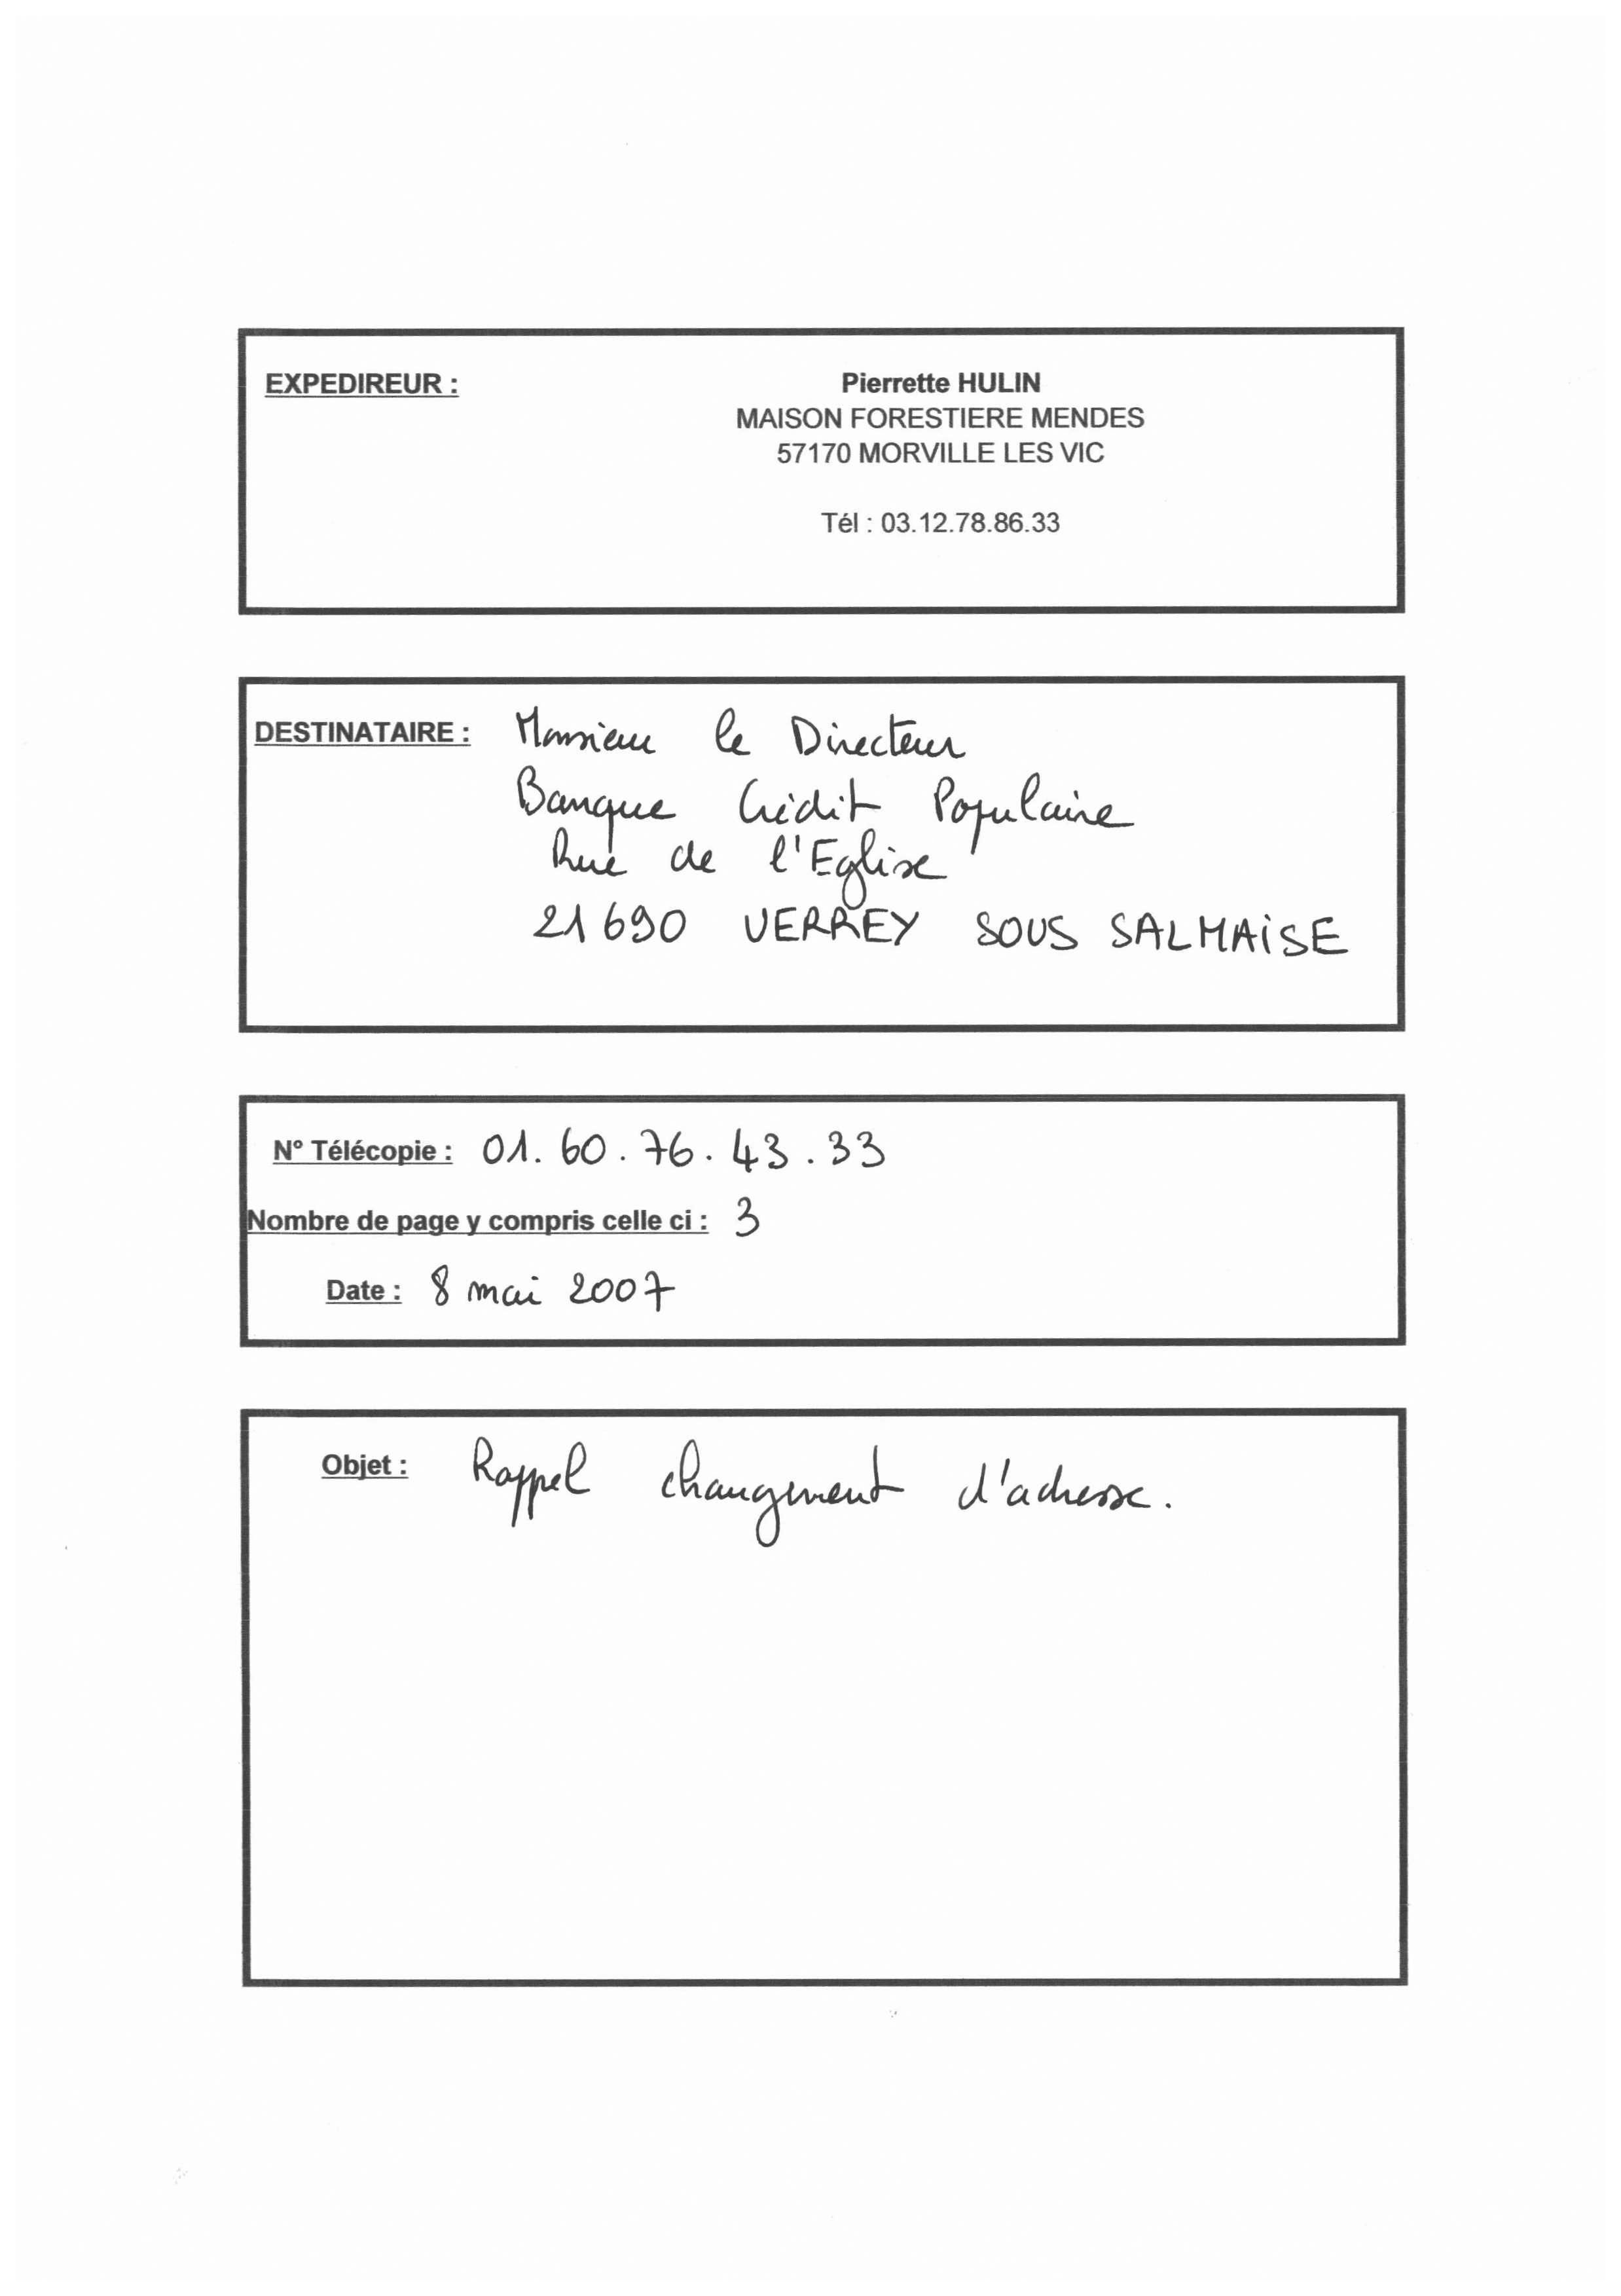 EXPEDIREUR :
Pierrette HULIN
MAISON FORESTIERE MENDES
57170 MORVILLE LES VIC
Tél : 03.12.78.86.33
DESTINATAIRE : Monsieur le Directeur
Banque Crédit Populaire
Rue de l'Eglise
21690 VERREY SOUS SALMAISE
N° Télécopie : 01. 60. 76. 43. 33
Nombre de page y compris celle ci : 3
Date : 8 mai 2007
Objet : Rappel changement d'adresse.